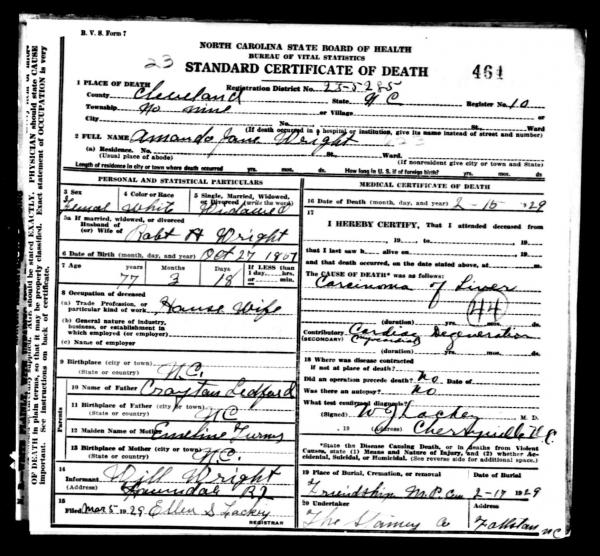 B. V. S. Form 7
NORTH CAROLINA STATE BOARD OF HEALTH
BUREAU OF VITAL STATISTICS
STANDARD CERTIFICATE OF DEATH
23
461
1 PLACE OF DEATH
Registration District No. 23-5285
County Cleveland State N C Register No. 10
Township No nine or Village
City No. St. Ward
(If death occurred in a hospital or institution, give its name instead of street and number)
2 FULL NAME Amanda Jane Wright
(a) Residence. No. St. Ward.
(Usual place of abode) (If nonresident give city or town and State)
Length of residence in city or town where death occurred yrs. mos. ds. How long in U. S. if of foreign birth? yrs. mos. ds.
PERSONAL AND STATISTICAL PARTICULARS
3 Sex 4 Color or Race 5 Single, Married, Widowed, or Divorced (write the word)
Female White Widowed
5a If married, widowed, or divorced
Husband of
(or) Wife of Robt H Wright
6 Date of Birth (month, day, and year) Oct 27
7 Age years Months Days If LESS than 1 day, hrs. or min.
77 3 18
8 Occupation of deceased
(a) Trade, Profession, or particular kind of work House Wife
(b) General nature of industry, business, or establishment in which employed (or employer)
(c) Name of employer
9 Birthplace (city or town)
(State or country) N.C.
10 Name of Father Ledford
11 Birthplace of Father (city or town)
(State or country) NC
12 Maiden Name of Mother Emeline
13 Birthplace of Mother (city or town)
(State or country) NC.
Parents
14
Informant Will Wright
(Address) Lawndale
15
Filed Mar 5, 1929 Ellen S Lackey
REGISTRAR
MEDICAL CERTIFICATE OF DEATH
16 Date of Death (month, day, and year) 2-15 1929
17
I HEREBY CERTIFY, That I attended deceased from
, 19 , to , 19
that I last saw h alive on , 19
and that death occurred, on the date stated above, at m.
The CAUSE OF DEATH* was as follows:
Carcinoma of Liver
44
(duration) yrs. mos. ds.
Contributory Cardiac Degeneration
(SECONDARY)
(duration) yrs. mos. ds.
18 Where was disease contracted
if not at place of death?
Did an operation precede death? No Date of
Was there an autopsy? No
What test confirmed diagnosis?
(Signed) Lackey M. D.
, 19 (Address) N.C.
*State the Disease Causing Death, or in deaths from Violent Causes, state (1) Means and Nature of Injury, and (2) whether Accidental, Suicidal, or Homicidal. (See reverse side for additional space.)
19 Place of Burial, Cremation, or removal Date of Burial
Friendship M.P. Cem 2-17 1929
20 Undertaker Address
The Stamey Co Fallston NC